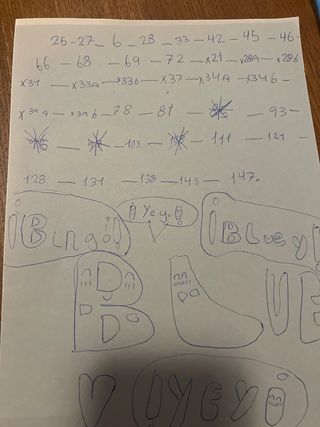 25 - 27 - 6 - 28 - 33 - 42 - 45 - 46 -
66 - 68 - 69 - 72 - x21 - x28A - x28b
x31 - x33A - x33b - x37 - x34A - x34b -
x39a - x39b - 78 - 81 - 93 -
103 - 111 - 121 -
128 - 131 - 138 - 143 - 147.
¡Bingo! ¡Yey! ¡Bluey!
BLUE
Y ¡YEY!